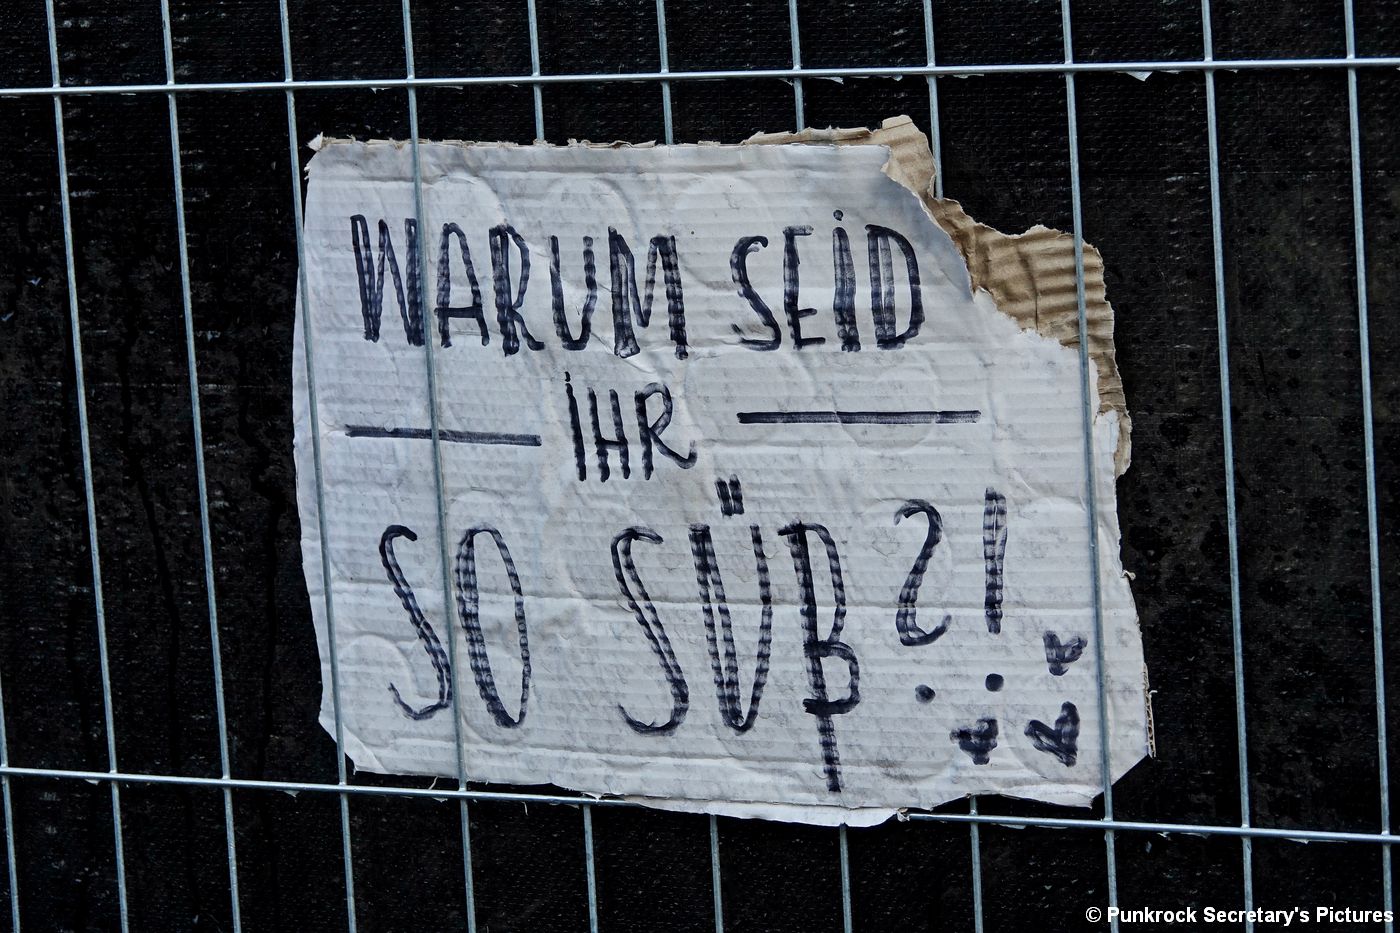 WARUM SEID
IHR
SO SÜß?!
© Punkrock Secretary's Pictures